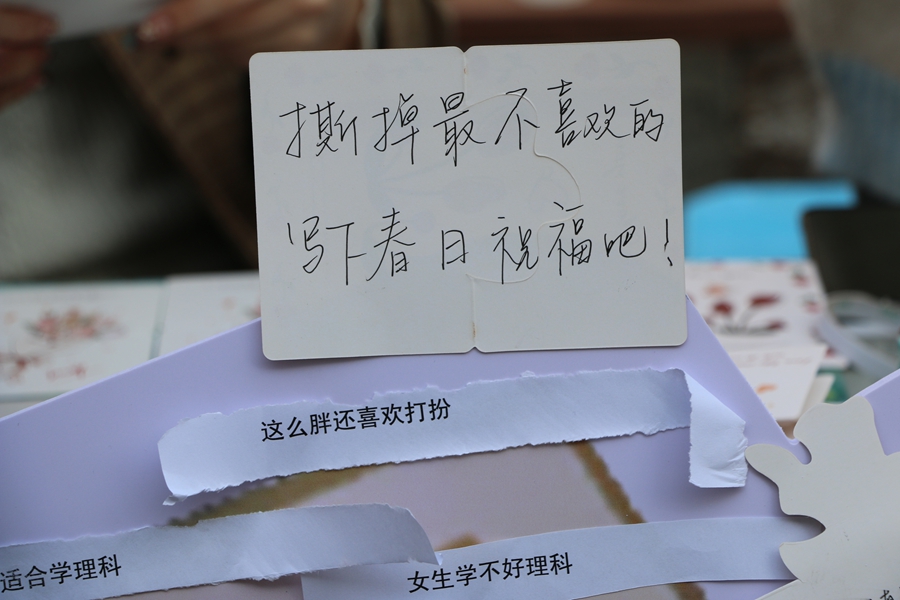 撕掉最不喜欢的
写下春日祝福吧！
这么胖还喜欢打扮
适合学理科
女生学不好理科